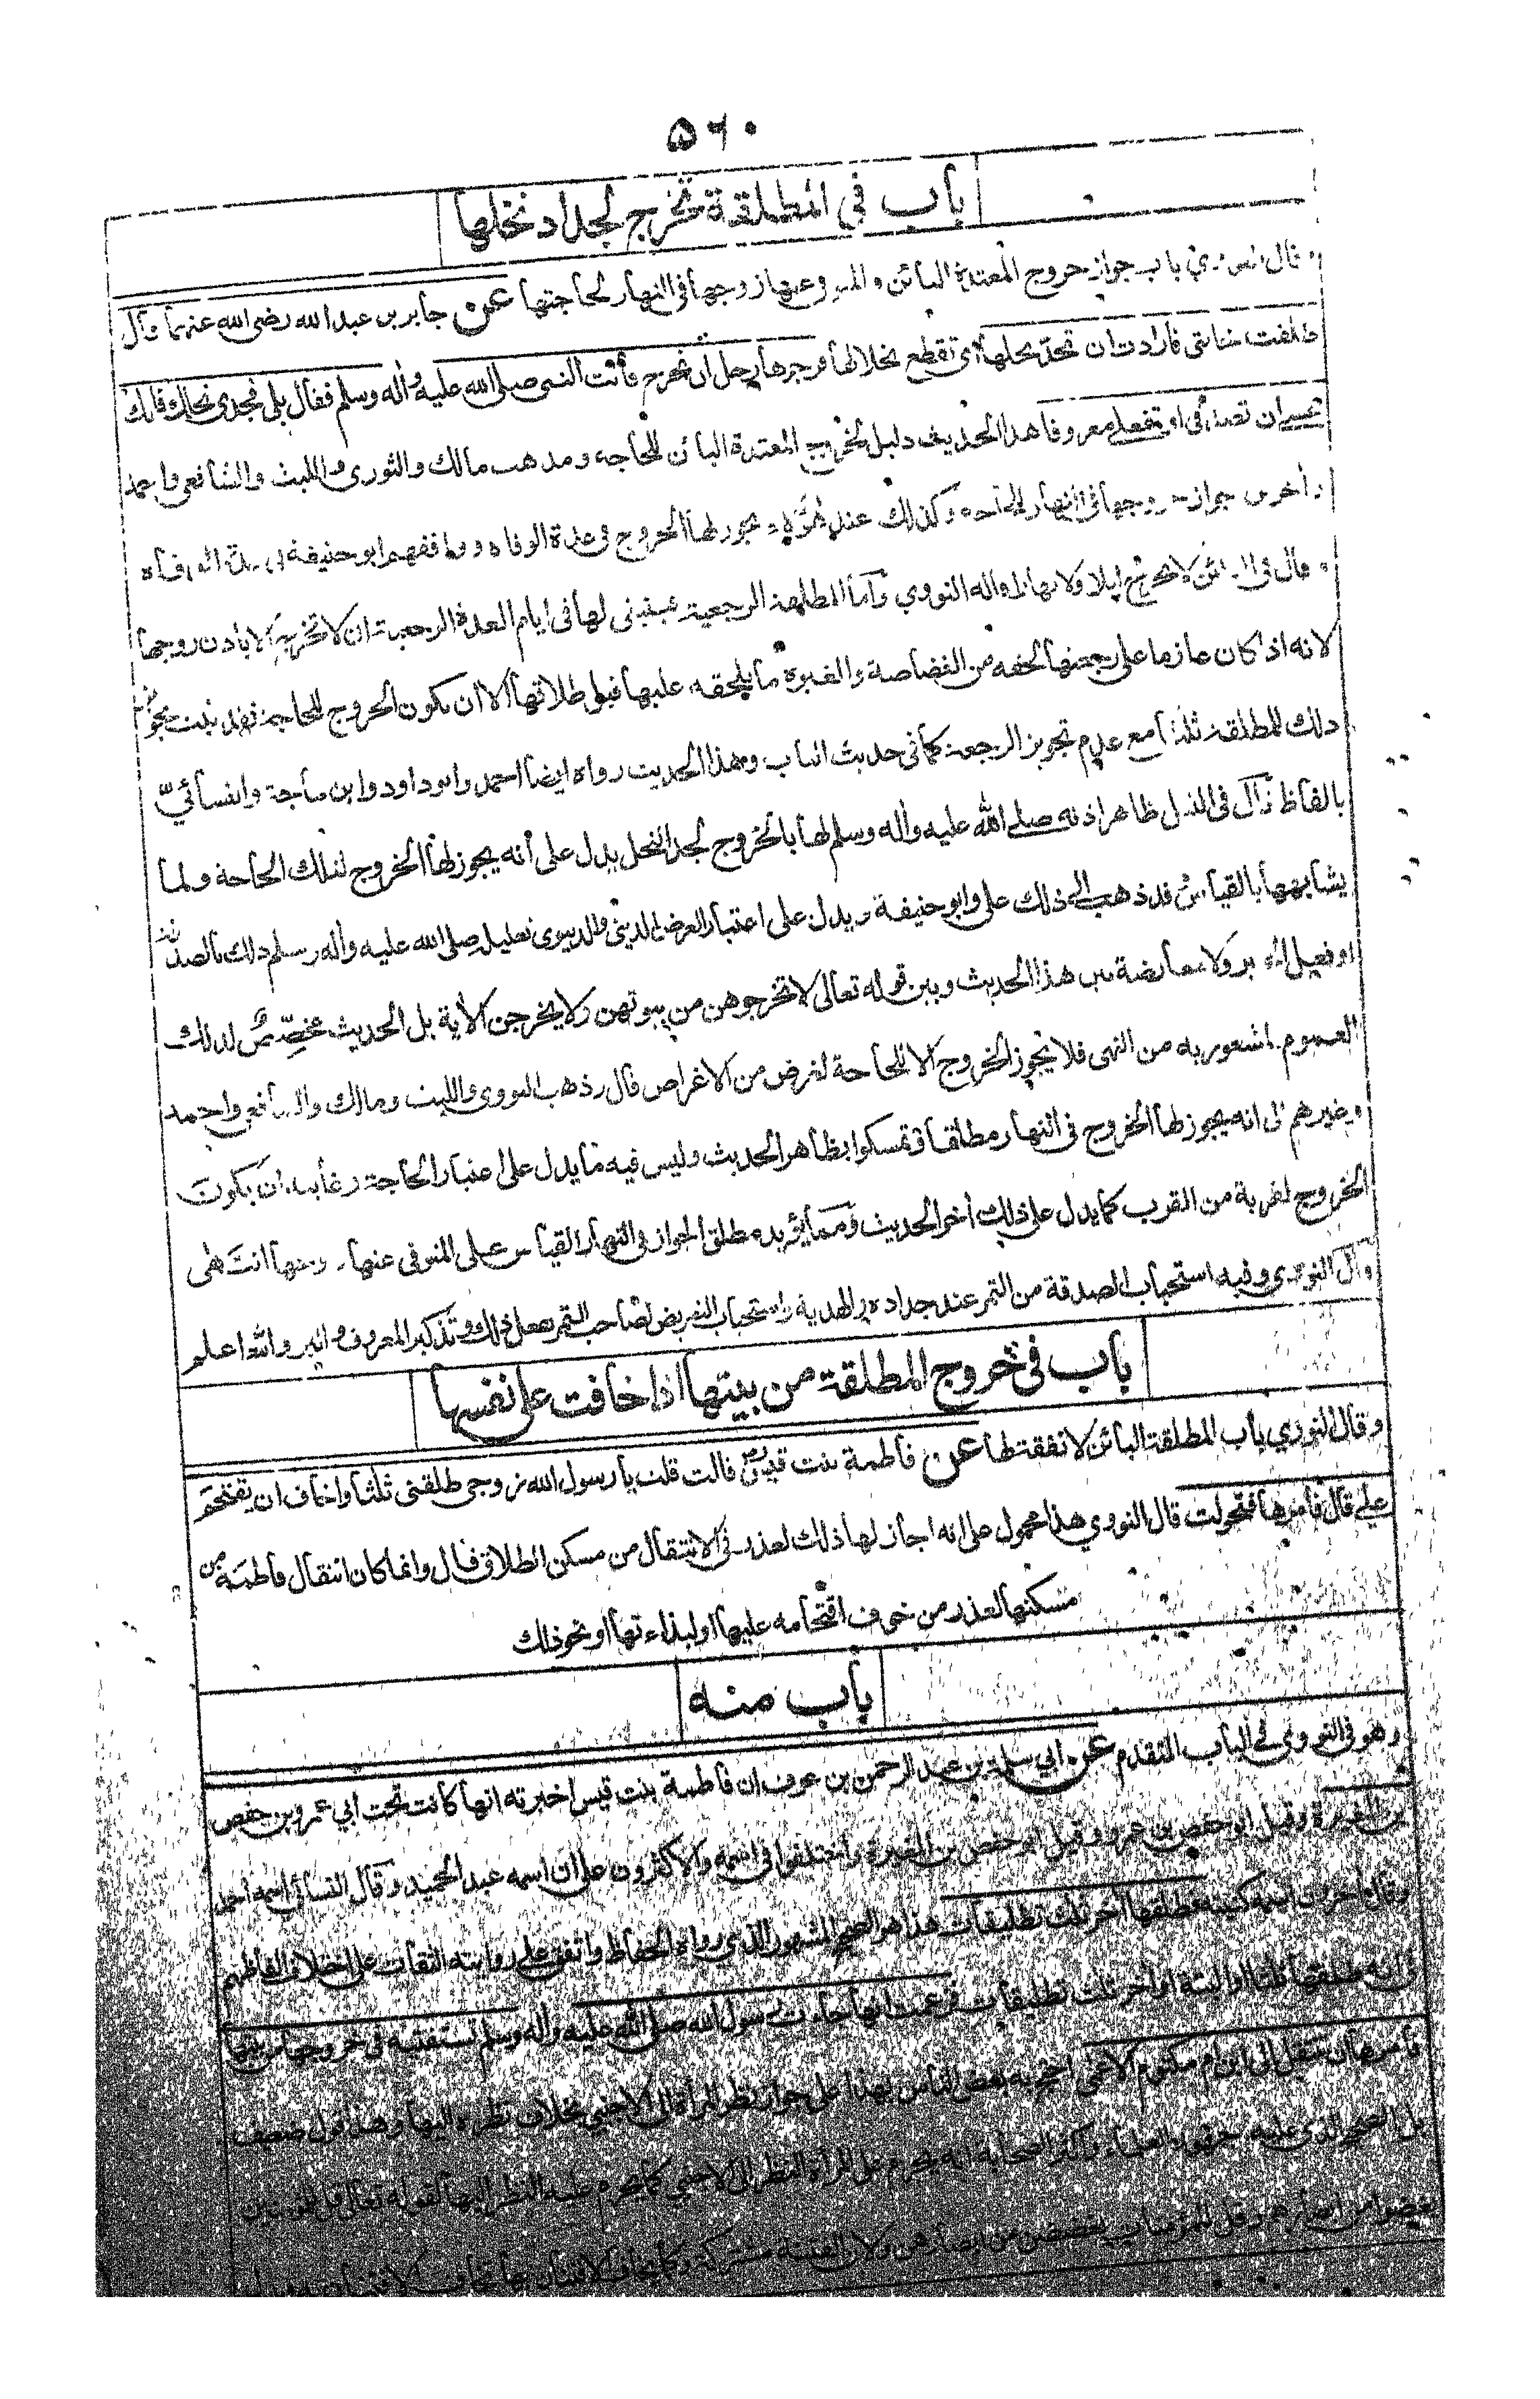 ۵۶۰
باب في المطلقة تخرج لجداد نخلها
وقال النووي باب جواز خروج المعتدة البائن والمتوفى عنها زوجها في النهار لحاجتها عن جابر بن عبد الله رضي الله عنهما قال
طلقت خالتي فارادت ان تجد نخلها اي تقطع نخلا لها فزجرها رجل ان تخرج فأتت النبي صلى الله عليه وأله وسلم فقال بلى فجدي نخلك فانك
عسى ان تصدقي او تفعلي معروفا هذا الحديث دليل لخروج المعتدة البائن للحاجة ومذهب مالك والثوري والليث والشافعي واحمد
وأخرين جواز خروجها في النهار للحاجة وكذلك عند هؤلاء يجوز لها الخروج في عدة الوفاة ووافقهم ابو حنيفة في عدة الوفاة
وقال في البائن لا تخرج ليلا ولا نهارا قاله النووي وأما المطلقة الرجعية فينبغي لها في ايام العدة الرجعية ان لا تخرج الا باذن زوجها
لانه اذا كان عازما على رجعتها لحقه من الغضاضة والغيرة ما يلحقه عليها قبل طلاقها الا ان يكون الخروج للحاجة فقد ثبت
ذلك للمطلقة ثلثا مع عدم تجويز الرجعة كما في حديث الباب وهذا الحديث رواه ايضا احمد وابو داود وابن ماجة والنسائي
بالفاظ قال في النيل ظاهر اذنه صلى الله عليه وأله وسلم لها بالخروج لجد النخل يدل على أنه يجوز لها الخروج لتلك الحاجة ولما
يشابهها بالقياس وقد ذهب الى ذلك علي وابو حنيفة ويدل على اعتبار الغرض الديني والدنيوي تعليله صلى الله عليه وأله وسلم ذلك بالصدقة
او فعل الخير ولا معارضة بين هذا الحديث وبين قوله تعالى لا تخرجوهن من بيوتهن ولا يخرجن الأية بل الحديث مخصص لذلك
العموم لما شعور به من النهي فلا يجوز الخروج الا للحاجة لغرض من الاغراض قال وذهب النووي والليث ومالك والشافعي واحمد
وغيرهم الى انه يجوز لها الخروج في النهار مطلقا وتمسكوا بظاهر الحديث وليس فيه ما يدل على اعتبار الحاجة وغايته ان يكون
الخروج لقربة من القرب كما يدل على ذلك أخر الحديث ومما يؤيد مطلق الجواز في النهار القياس على المتوفى عنها انتهى
وقال النووي وفيه استحباب الصدقة من التمر عند جداده والهدية واستحباب التعريض لصاحب التمر بفعل ذلك وتذكير المعروف والبر والله اعلم
باب في خروج المطلقة من بيتها اذا خافت على نفسها
وقال النووي باب المطلقة البائن لا نفقة لها عن فاطمة بنت قيس قالت قلت يا رسول الله زوجي طلقني ثلثا واخاف ان يقتحم
علي قال فأمرها فتحولت قال النووي هذا محمول على انه اجاز لها ذلك لعذر في الانتقال من مسكن الطلاق قال وانما كان انتقال فاطمة من
مسكنها لعذر من خوف اقتحامه عليها او لبذاءتها او نحو ذلك
باب منه
وهو في النووي في الباب المتقدم عن ابي سلمة بن عبد الرحمن بن عوف ان فاطمة بنت قيس اخبرته انها كانت تحت ابي عمرو بن حفص
بن المغيرة وقيل ابو حفص بن عمرو وقيل ابو حفص بن المغيرة واختلفوا في اسمه والاكثرون على ان اسمه عبد الحميد وقال النسائي اسمه احمد
وقال اخرون اسمه كنيته فطلقها أخر ثلث تطليقات هذا هو الصحيح المشهور الذي رواه الحفاظ واتفق على روايته الثقات على اختلاف الفاظهم
في انه طلقها ثلثا او البتة او أخر ثلث تطليقات فزعمت انها جاءت رسول الله صلى الله عليه وأله وسلم تستفتيه في خروجها من بيتها
فأمرها ان تنتقل الى ابن ام مكتوم الاعمى احتج به بعض الناس بهذا على جواز نظر المرأة الى الاجنبي بخلاف نظره اليها وهذا قول ضعيف
بل الصحيح الذي عليه جمهور العلماء واكثر الصحابة انه يحرم على المرأة النظر الى الاجنبي كما يحرم عليه النظر اليها لقوله تعالى قل للمؤمنين
يغضوا من ابصارهم وقل للمؤمنات يغضضن من ابصارهن ولان الفتنة مشتركة وكما يخاف الافتتان بها تخاف الافتتان به